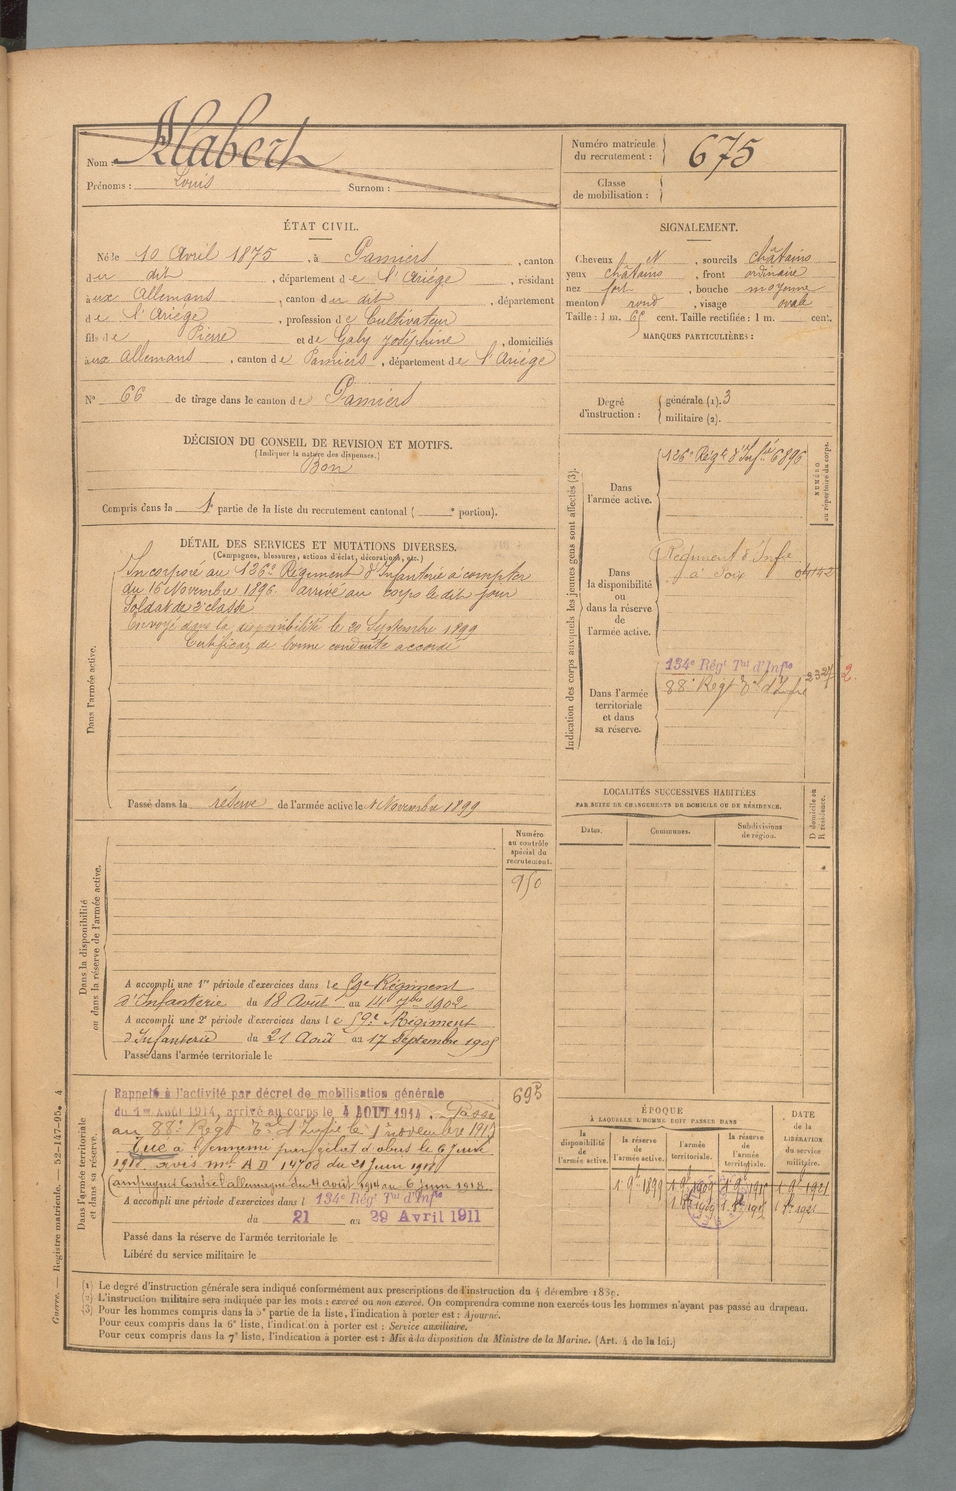 Nom : Alabert
Prénoms : Louis Surnom :
Numéro matricule du recrutement : 675
Classe de mobilisation :
ÉTAT CIVIL.
Né le 10 Avril 1875, à Pamiers, canton
du dit, département de l'Ariége, résidant
aux Allemans, canton du dit, département
de l'Ariége, profession de Cultivateur
fils de Pierre et de Galy Joséphine, domiciliés
aux Allemans, canton de Pamiers, département de l'Ariége
N° 66 de tirage dans le canton de Pamiers
SIGNALEMENT.
Cheveux N, sourcils châtains
yeux châtains, front ordinaire
nez fort, bouche moyenne
menton rond, visage ovale
Taille : 1 m. 65 cent. Taille rectifiée : 1 m. cent.
MARQUES PARTICULIÈRES :
Degré d'instruction : générale (1). 3
militaire (2).
DÉCISION DU CONSEIL DE REVISION ET MOTIFS.
(Indiquer la nature des dispenses.)
Bon
Compris dans la 1e partie de la liste du recrutement cantonal ( e portion).
DÉTAIL DES SERVICES ET MUTATIONS DIVERSES.
(Campagnes, blessures, actions d'éclat, décorations, etc.)
Dans l'armée active.
Incorporé au 126e Régiment d'Infanterie à compter
du 16 Novembre 1896 arrivé au corps le dit jour
Soldat de 2e classe
Envoyé dans la disponibilité le 20 Septembre 1899
Certificat de bonne conduite accordé
Passé dans la réserve de l'armée active le 1 Novembre 1899
Indication des corps auxquels les jeunes gens sont affectés (3).
NUMÉRO au répertoire du corps.
Dans l'armée active.
126e Régt d'Infie 6896
Dans la disponibilité ou dans la réserve de l'armée active.
Régiment d'Infie
à Foix
Dans l'armée territoriale et dans sa réserve.
134e Régt Tal d'Infie
88e Régt Tal d'Infie
LOCALITÉS SUCCESSIVES HABITÉES
PAR SUITE DE CHANGEMENTS DE DOMICILE OU DE RÉSIDENCE.
Dates. Communes. Subdivisions de région. D domicile ou R résidence.
Dans la disponibilité ou dans la réserve de l'armée active.
Numéro au contrôle spécial du recrutement.
950
A accompli une 1re période d'exercices dans le 59e Régiment
d'Infanterie du 18 Août au 14 7bre 1902
A accompli une 2e période d'exercices dans le 59e Régiment
d'Infanterie du 21 Août au 17 Septembre 1905
Passé dans l'armée territoriale le
Dans l'armée territoriale et dans sa réserve.
693
Rappelé à l'activité par décret de mobilisation générale
du 1er Août 1914, arrivé au corps le 4 AOUT 1914. Passé
au 88e Régt Tal d'Infie le 1 novembre 1915
Tué à l'ennemi par éclat d'obus le 6 Juin
1918. avis Mel A D 14703 du 21 Juin 1918
Campagne Contre l'allemagne du 4 août 1914 au 6 Juin 1918.
A accompli une période d'exercices dans l 134e Régt Tal d'Infie
du 21 au 29 Avril 1911
Passé dans la réserve de l'armée territoriale le
Libéré du service militaire le
ÉPOQUE
À LAQUELLE L'HOMME DOIT PASSER DANS
la disponibilité de l'armée active. la réserve de l'armée active. l'armée territoriale. la réserve de l'armée territoriale.
DATE de la LIBÉRATION du service militaire.
1 9bre 1899 1 9bre 1909 1 9bre 1915 1 9bre 1921
Guerre. — Registre matricule. — 52-147-95. 4
(1) Le degré d'instruction générale sera indiqué conformément aux prescriptions de l'instruction du 4 décembre 1889.
(2) L'instruction militaire sera indiquée par les mots : exercé ou non exercé. On comprendra comme non exercés tous les hommes n'ayant pas passé au drapeau.
(3) Pour les hommes compris dans la 5e partie de la liste, l'indication à porter est : Ajourné.
Pour ceux compris dans la 6e liste, l'indication à porter est : Service auxiliaire.
Pour ceux compris dans la 7e liste, l'indication à porter est : Mis à la disposition du Ministre de la Marine. (Art. 4 de la loi.)